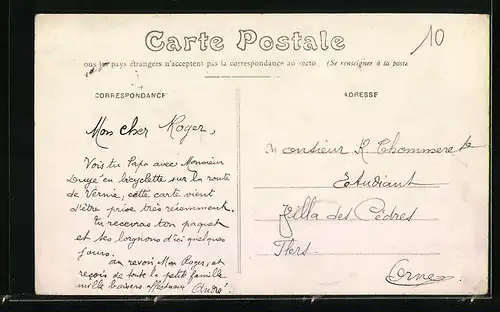 Carte Postale
10
ous les pays étrangers n'acceptent pas la correspondance au recto (Se renseigner à la poste
CORRESPONDANCE
ADRESSE
Mon cher Roger,
Vois tu Papa avec Monsieur
en bicyclette sur la route
de Vernie, cette carte vient
d'être prise très récemment.
tu recevras ton paquet
et tes lorgnons d'ici quelques
jours.
au revoir Mon Roger, et
reçois de toute la petite famille
mille baisers affectueux André.
Monsieur R. Thommeret
Etudiant
Villa des Cèdres
Flers.
Orne